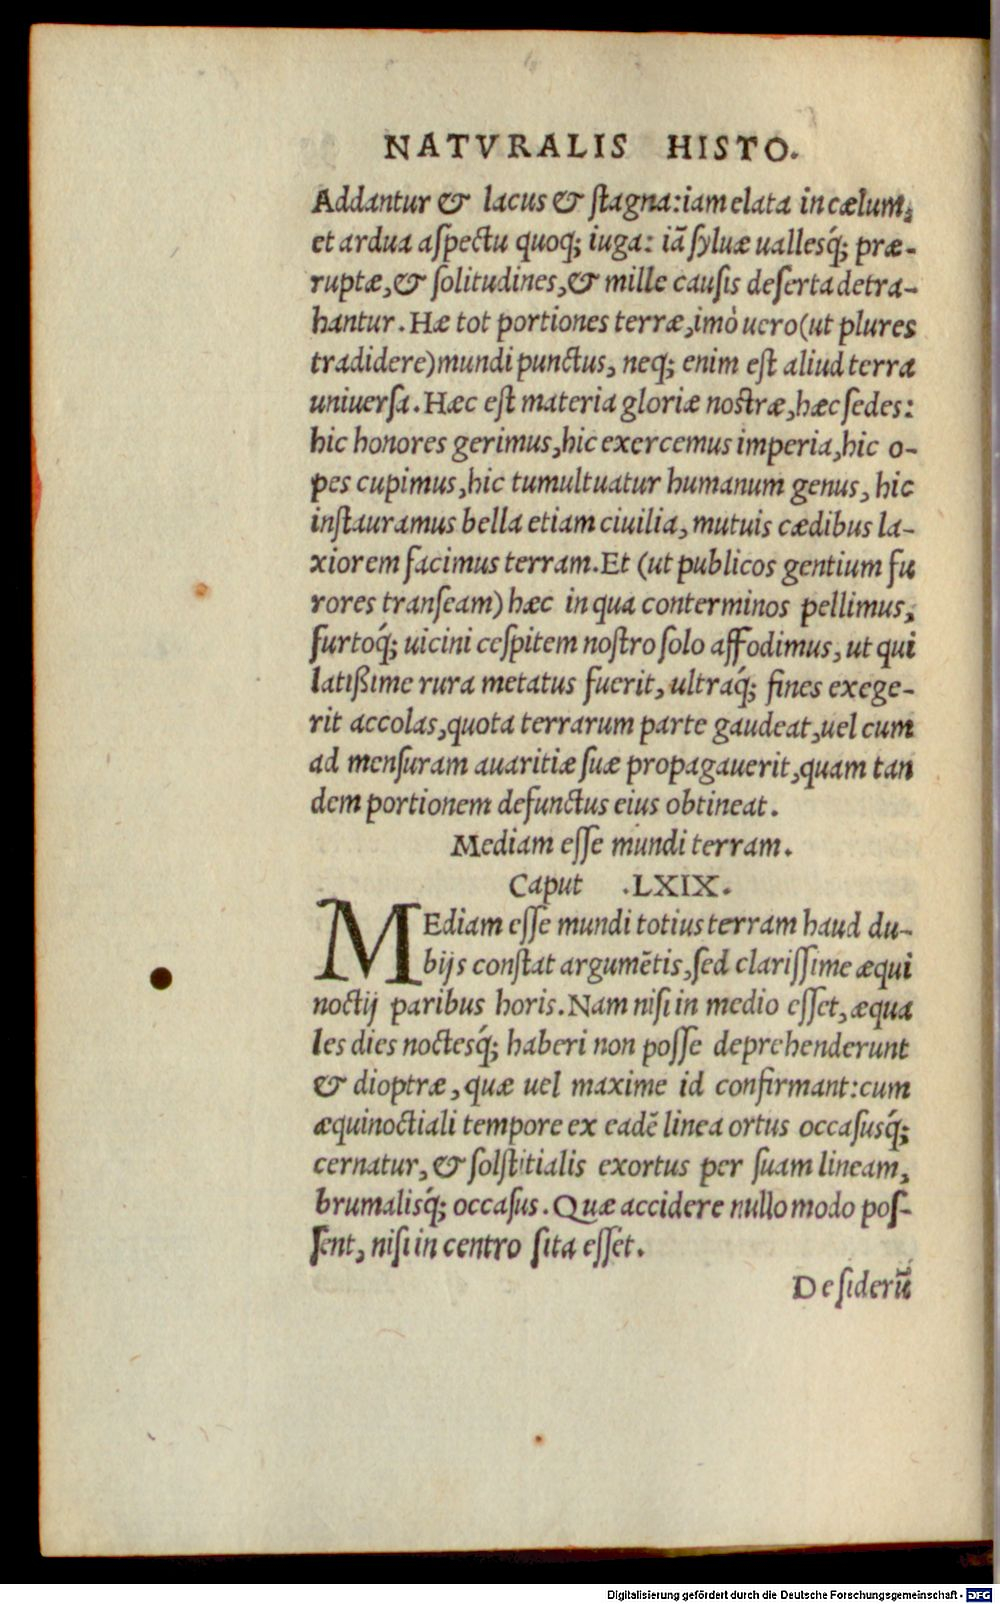 NATVRALIS HISTO.
Addantur & lacus & ſtagna:iam elata in cælum,
et ardua aſpectu quoq; iuga: iã ſyluæ uallesq́; præ-
ruptæ,& ſolitudines,& mille cauſis deſerta detra-
hantur. Hæ tot portiones terræ,imò uero(ut plures
tradidere)mundi punctus, neq; enim eſt aliud terra
uniuerſa. Hæc eſt materia gloriæ noſtræ,hæc ſedes:
hic honores gerimus,hic exercemus imperia,hic o-
pes cupimus,hic tumultuatur humanum genus, hic
inſtauramus bella etiam ciuilia, mutuis cædibus la-
xiorem facimus terram. Et (ut publicos gentium fu
rores tranſeam) hæc in qua conterminos pellimus,
furtoq́; uicini ceſpitem noſtro ſolo affodimus, ut qui
latißime rura metatus fuerit, ultraq́; fines exege-
rit accolas,quota terrarum parte gaudeat,uel cum
ad menſuram auaritiæ ſuæ propagauerit,quam tan
dem portionem defunctus eius obtineat.
Mediam eſſe mundi terram.
Caput .LXIX.
MEdiam eſſe mundi totius terram haud du-
bijs conſtat argumẽtis,ſed clariſſime æqui
noctij paribus horis. Nam niſi in medio eſſet, æqua
les dies noctesq́; haberi non poſſe deprehenderunt
& dioptræ, quæ uel maxime id confirmant: cum
æquinoctiali tempore ex eadẽ linea ortus occaſusq́;
cernatur, & ſolſtitialis exortus per ſuam lineam,
brumalisq́; occaſus. Quæ accidere nullo modo poſ-
ſent, niſi in centro ſita eſſet.
Deſiderũ
Digitalisierung gefördert durch die Deutsche Forschungsgemeinschaft - DFG